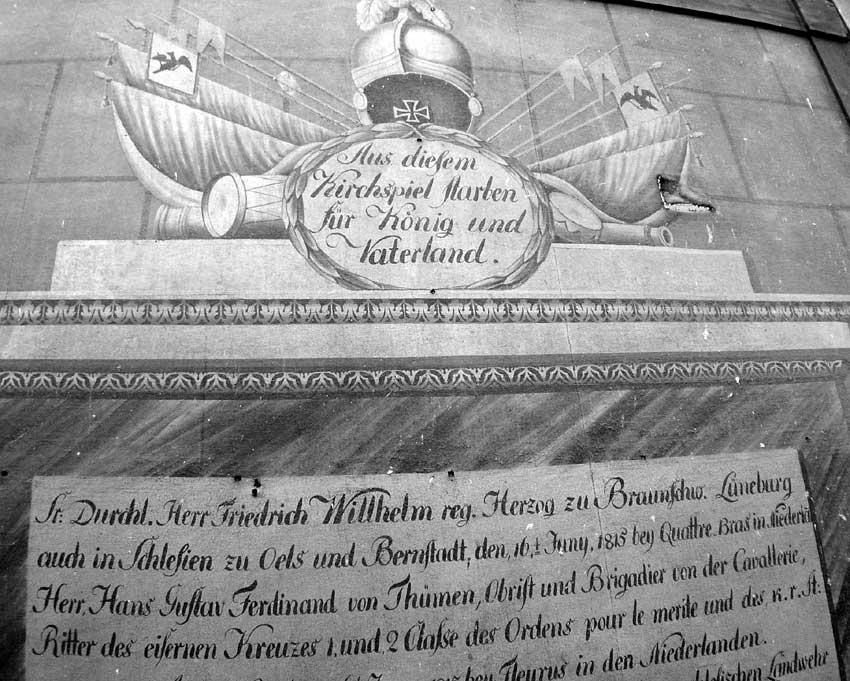 Aus dieſem
Kirchspiel ſtarben
für König und
Vaterland.
Sr: Durchl. Herr Friedrich Willhelm reg. Herzog zu Braunſchw. Lüneburg
auch in Schleſien zu Oels und Bernſtadt, den, 16,t Juny, 1815 bey Quattre. Bras in Niederlä
Herr, Hans Guſtav Ferdinand von Thümen, Obriſt und Brigadier von der Cavallerie,
Ritter des eiſernen Kreuzes 1, und, 2 Claſse des Ordens pour le merite und des, K. r. St:
bey Fleurus in den Niederlanden.
Landwehr